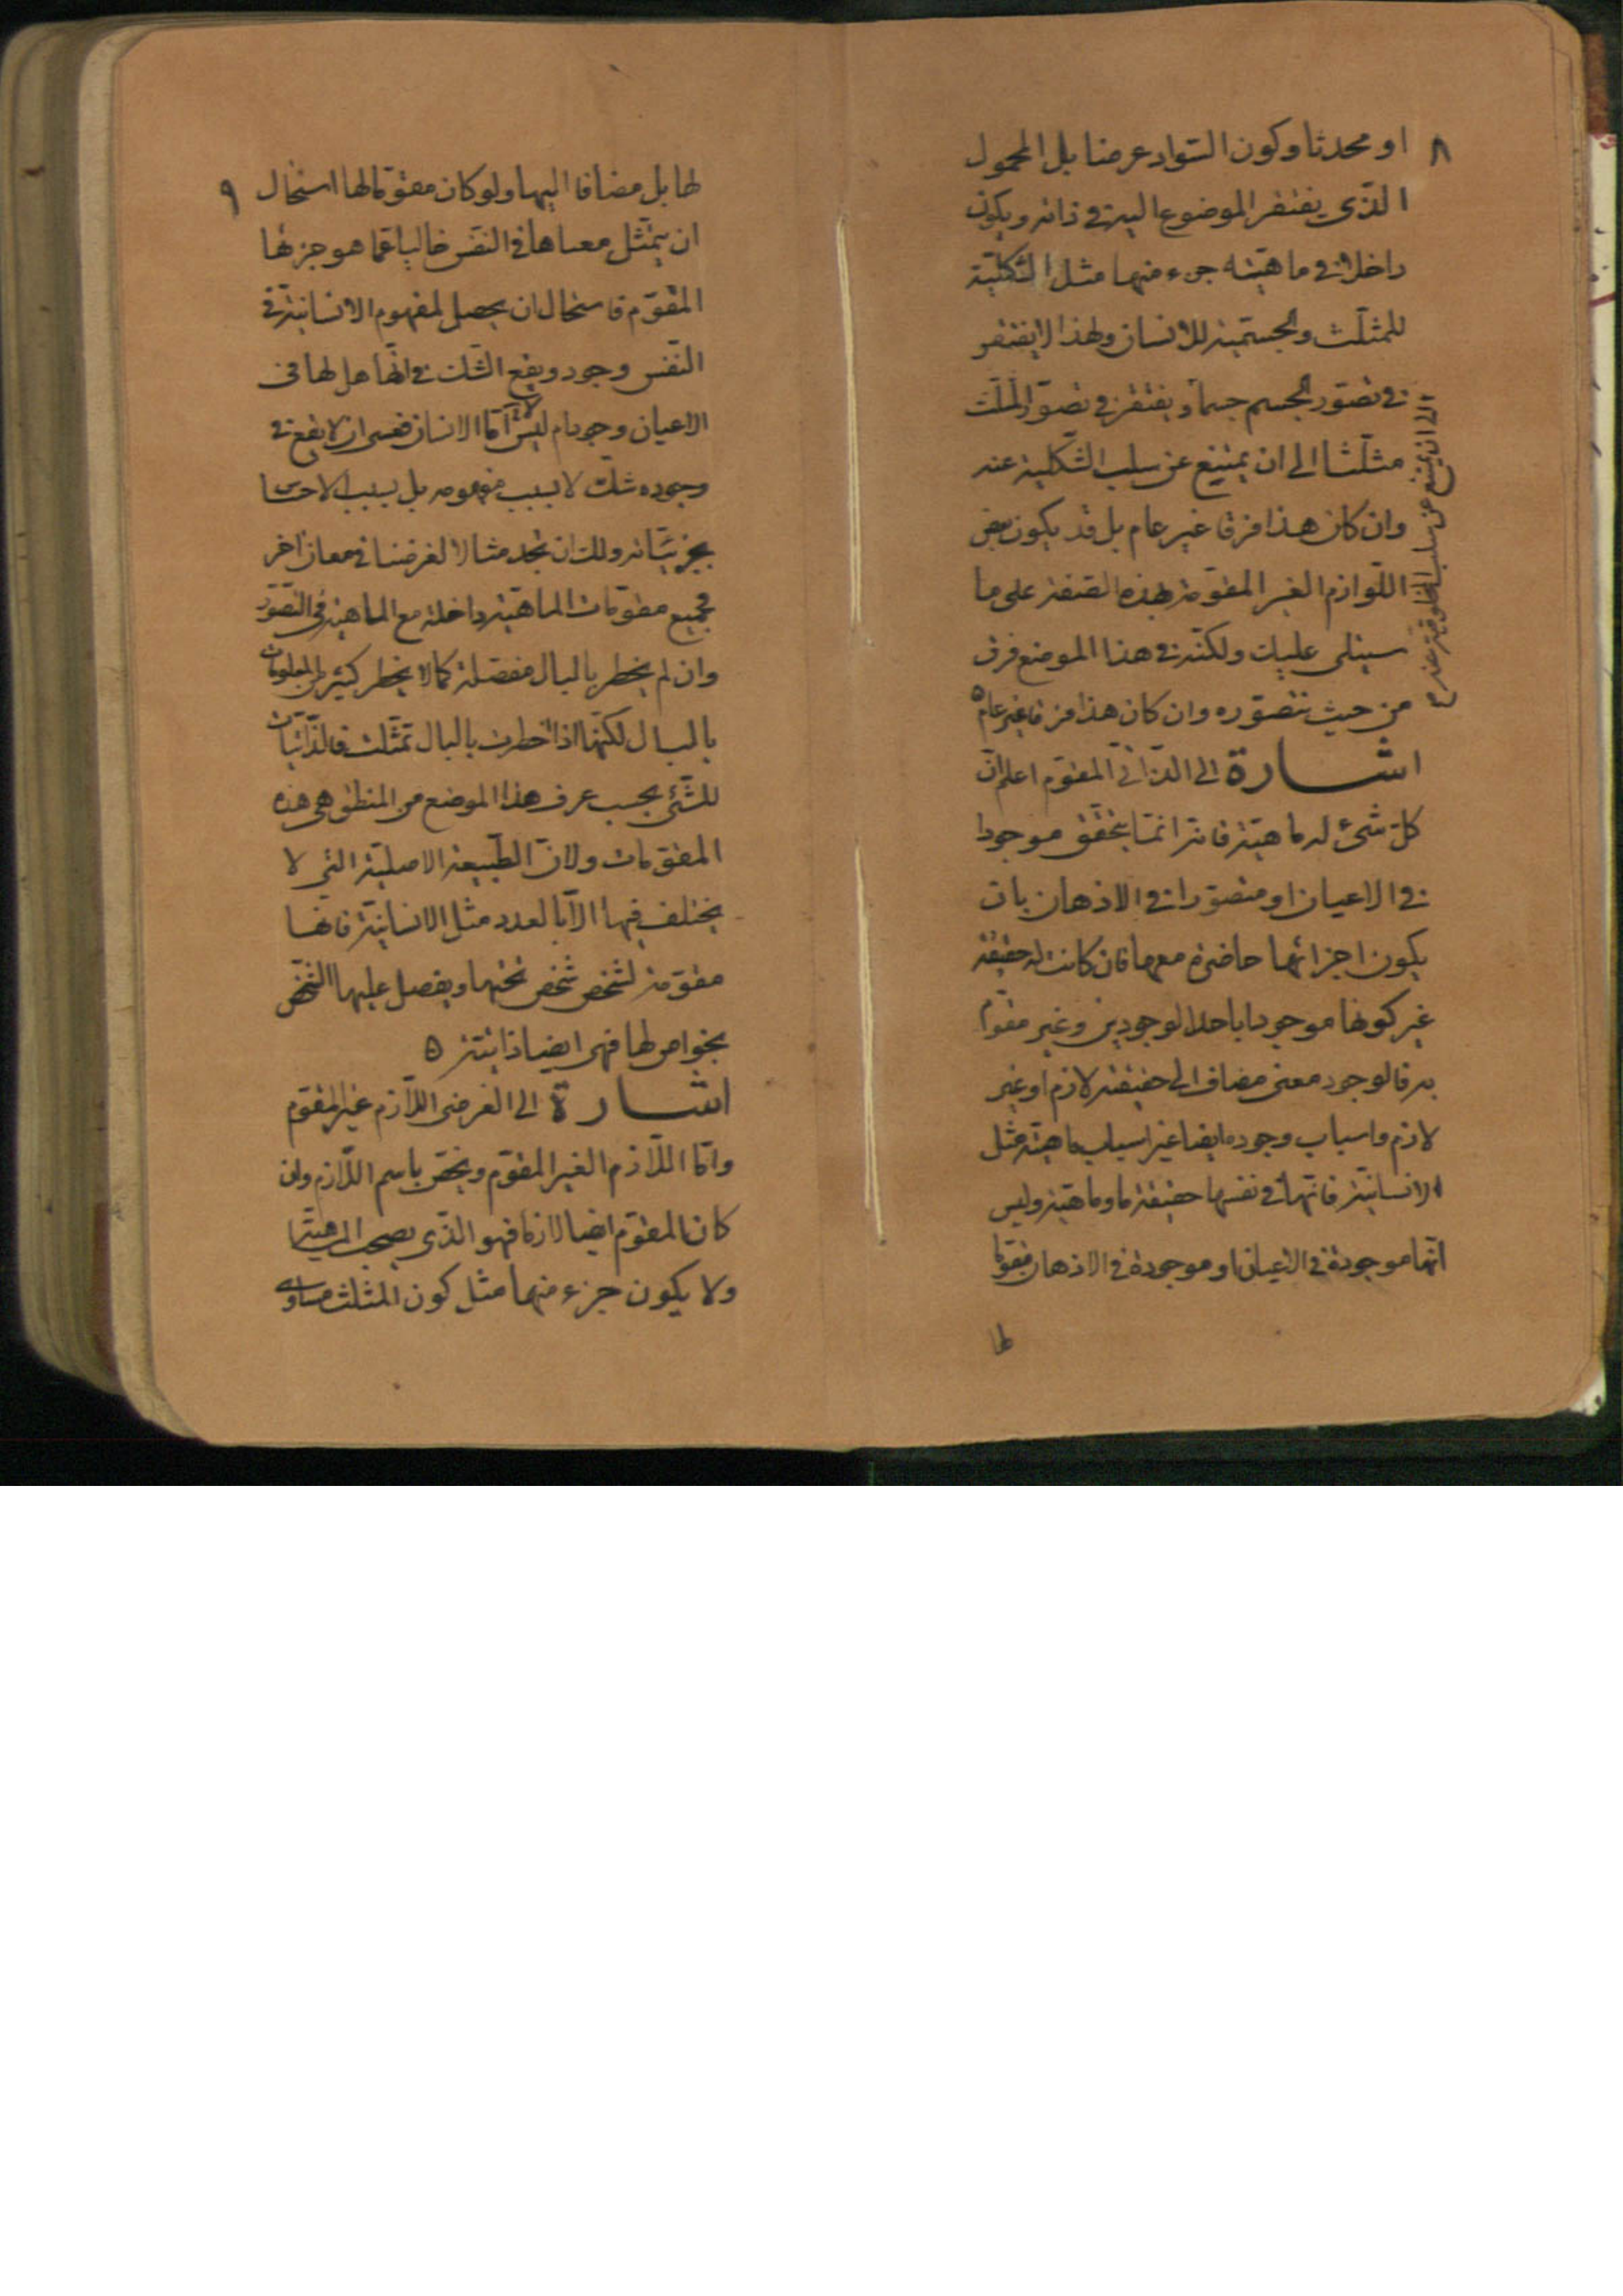 ٨
او محدثا وكون السّواد عرضا بل المحمول
الذّى يفتقر الموضوع اليه فى ذاته ويكون
داخلا فى ماهيته جزء منها مثل الشّكليّة
للمثلّث والجسميّة للانسان ولهذا لا يفتقر
فى تصوّر الجسم جسماً ويفتقر فى تصوّر المثلّث
مثلّثا الى ان يمتنع عن سلب الشّكلية عنه
وان كان هذا فرقا غير عام بل قد يكون بعض
اللّوازم الغير المقوّمة بهذه الصّفة على ما
سيتلى عليك ولكنّه فى هذا الموضع فرق
من حيث نتصوّره وان كان هذا فرقا غير عام ه
الى ان يمتنع عن سلب المخلوقية عنه م
اشارة الى الذّاتىّ المقوّم اعلم انّ
كلّ شىء له ماهيّة فانّه انّما يتحقّق موجودا
فى الاعيان او متصوّرا فى الاذهان بان
يكون اجزائها حاضرة معها فان كانت له حقيقة
غير كونها موجودا باحد الوجودين وغير مقوّم
به فالوجود معنى مضاف الى حقيقته لازم او غير
لازم واسباب وجوده ايضا غير اسباب ماهيّته مثل
الانسانيّة فانّها فى نفسها حقيقة ما وماهيّة وليس
انّها موجودة فى الاعيان او موجودة فى الاذهان مقوّما
٩
لها بل مضافا اليها ولو كان مقوّما لها استحال
ان يتمثّل معناها فى النفس خاليا عمّا هو جزئها
المقوّم فاستحال ان يحصل لمفهوم الانسانيّة فى
النّفس وجود ويقع الشّك فى انّها هل لها فى
الاعيان وجود ام ليس امّا الانسان فعسى ان لا يقع فى
وجوده شك لا بسبب مفهومه بل بسبب الاحساس
بجزئيّاته ولك ان تجد مثالا لغرضنا فى معان اخر
فجميع مقوّمات الماهيّة داخلة مع الماهيّة فى التّصوّر
وان لم يخطر بالبال مفصّلة كما لا يخطر كثير من المعلومات
بالبال لكنّها اذا خطرت بالبال تمثّلت فالذّاتيّات
للشّئ بحسب عرف هذا الموضع من المنطق هى هذه
المقوّمات ولانّ الطّبيعة الاصليّة التى لا
يختلف فيها الّا بالعدد مثل الانسانيّة فانها
مقوّمة لشخص شخص تحتها ويفصل عليها الشّخص
بخواص لها فهى ايضا ذاتيّة ه
اشارة الى العرضى اللّازم غير المقوّم
وامّا اللّازم الغير المقوّم ويخصّ باسم اللّازم وان
كان المقوّم ايضا لازما فهو الذّى يصحب الماهيّة
ولا يكون جزء منها مثل كون المثلث مساوى